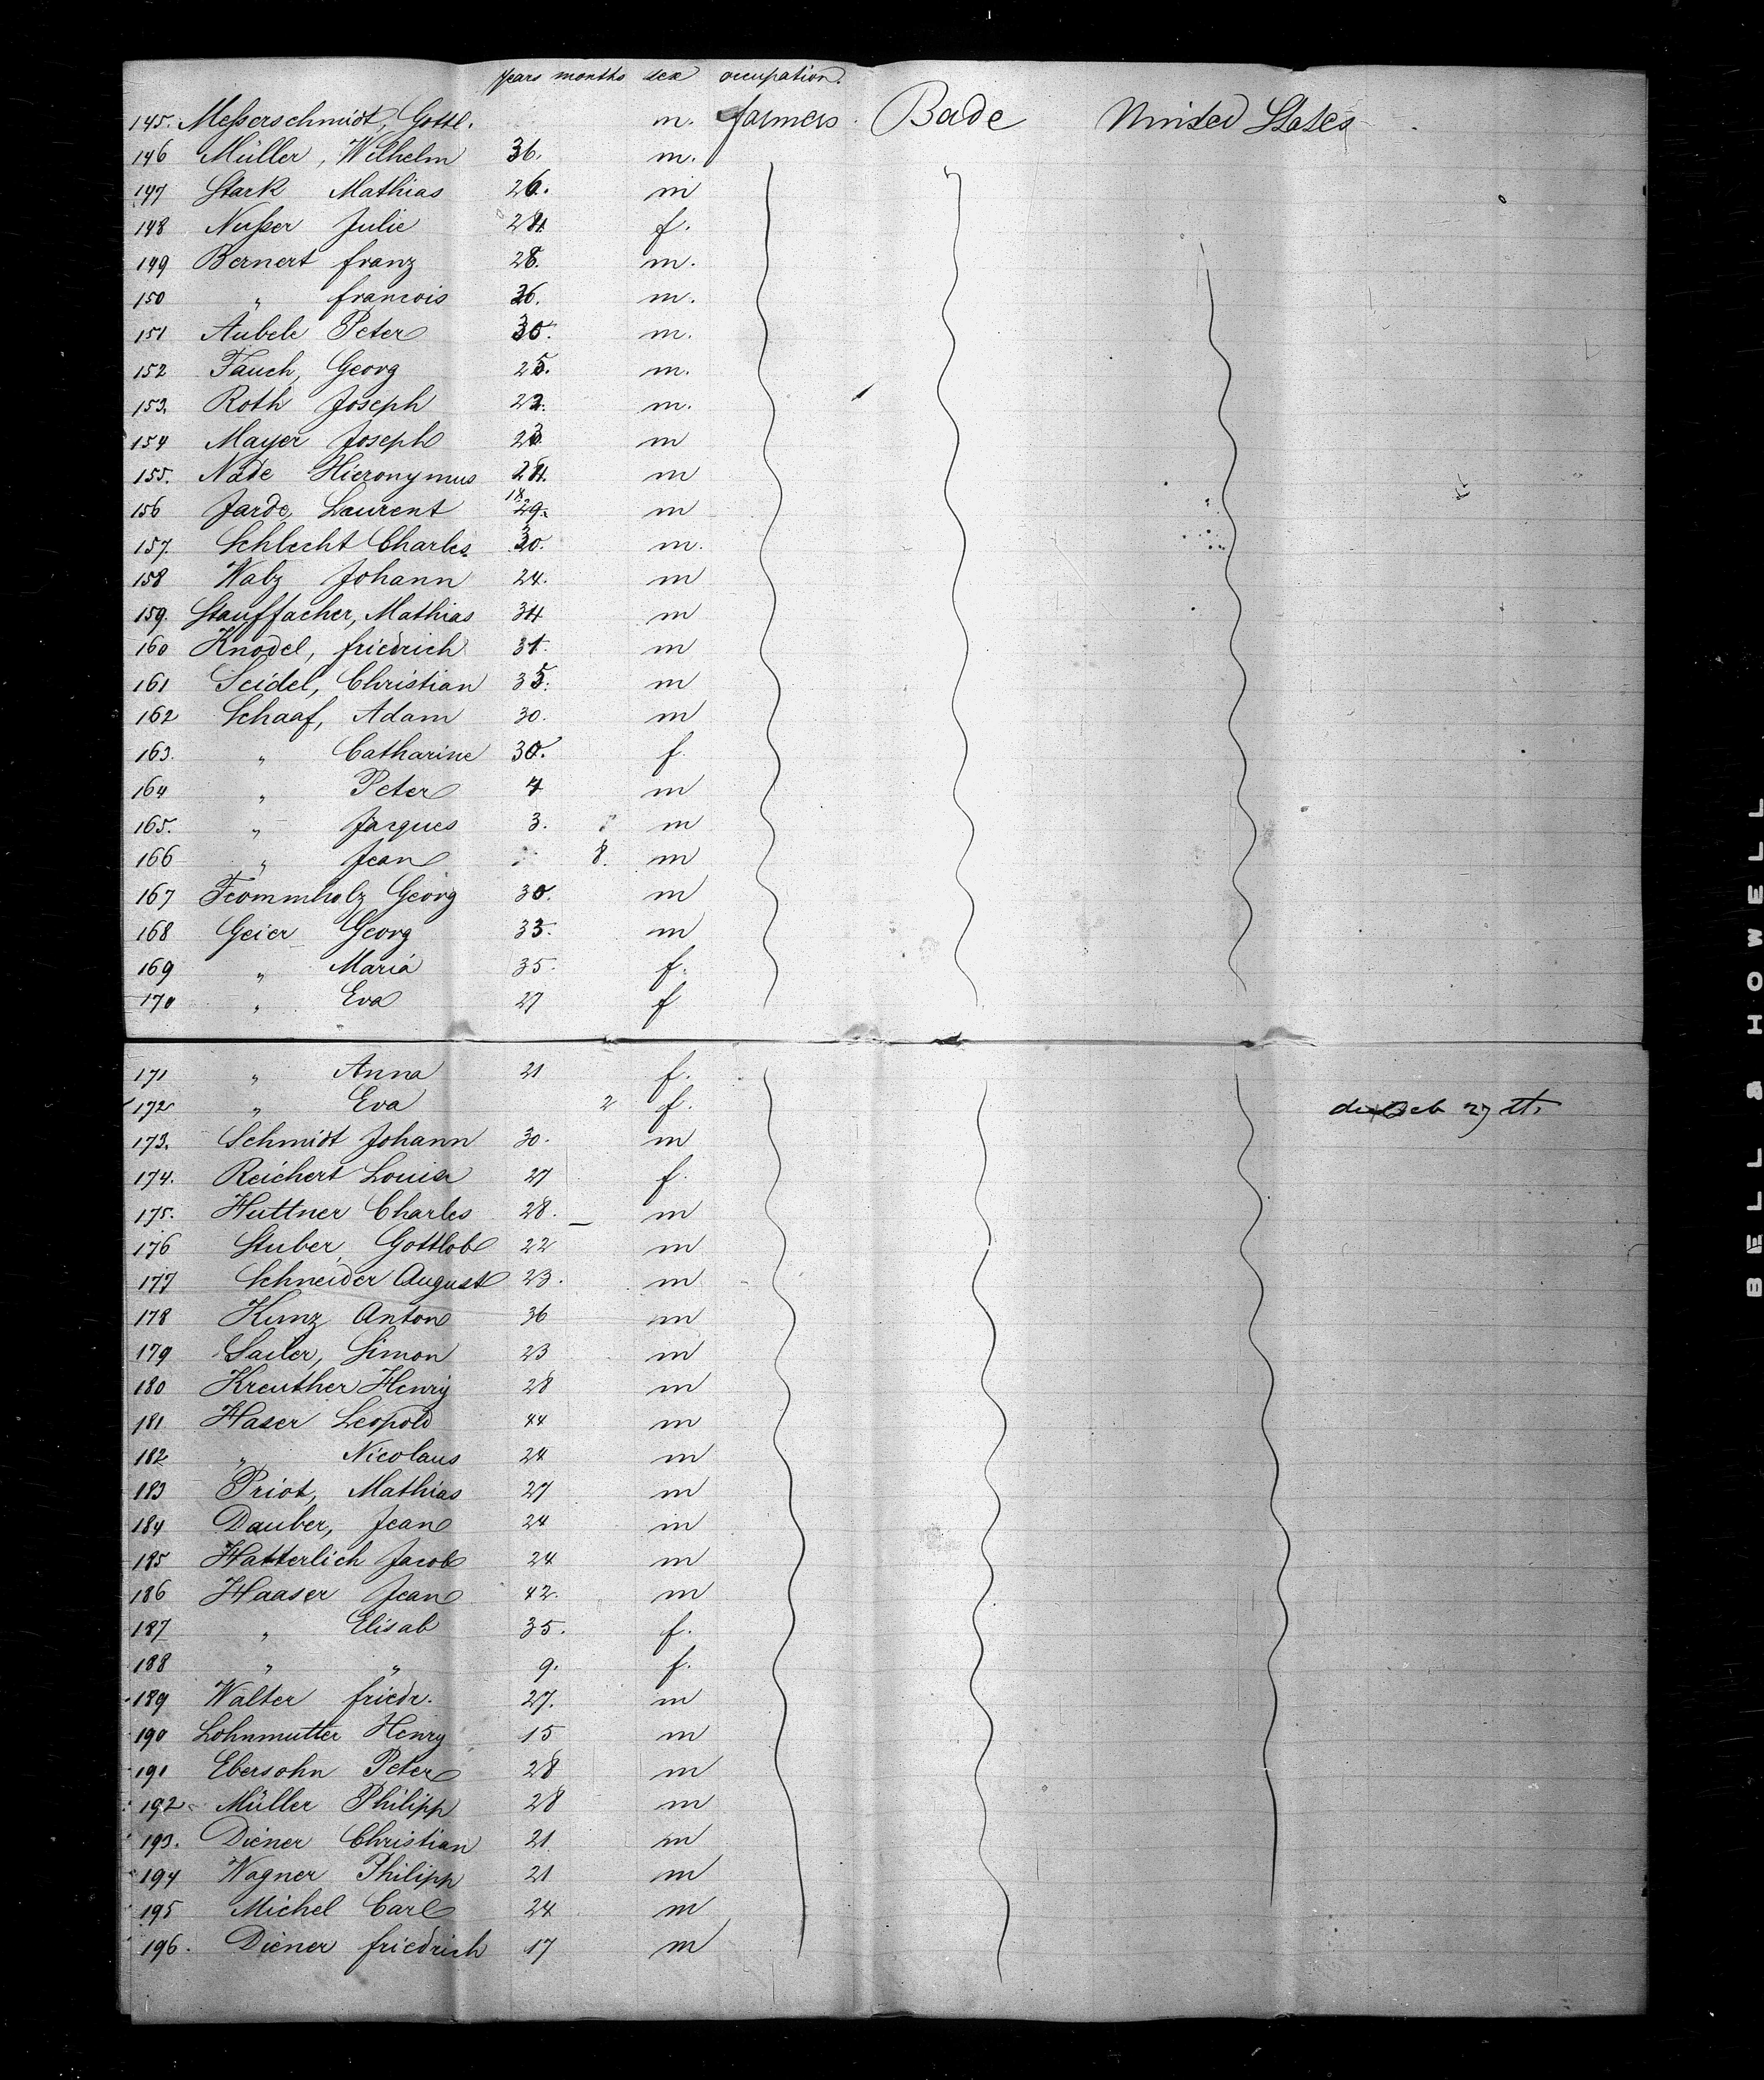 years months sex occupation.
145. Meßerschmidt, Gottl. m. farmers Bade United States
146 Müller, Wilhelm 36. m.
147 Stark Mathias 26. m
148 Nußer Julie 24 f.
149 Bernert franz 28. m.
150 " francois 36. m.
151 Aubele Peter 30. m.
152 Fauch, Georg 25. m.
153. Roth Joseph 22. m.
154 Mayer Joseph 23 m
155. Nade Hieronymus 24. m
156 Jarde, Laurent 29. m
157. Schlecht Charles 30. m.
158 Walz Johann 24. m
159. Stauffacher, Mathias 34 m
160 Knodel, friedrich 31. m
161 Seidel, Christian 35. m
162 Schaaf, Adam 30. m
163. " Catharine 30. f.
164 " Peter 4 m
165. " Jacques 3. m
166 " Jean 8. m
167 Frommholz Georg 30. m
168 Geier Georg 33. m
169 " Maria 35. f.
170 " Eva 27 f
171 " Anna 21 f.
172 " Eva 2 f. 27th
173. Schmidt Johann 30. m
174. Reichert Louisa 27 f.
175. Huttner Charles 28. m
176 Stuber, Gottlob 22 m
177 Schneider August 23. m
178 Kunz Anton 36 m
179 Sailer, Simon 23 m
180 Kreuther Henry 28 m
181 Haser Leopold 44 m
182 " Nicolaus 24 m
183 Priot, Mathias 27 m
184 Dauber, Jean 24 m
185 Hatterlich Jacob 24 m
186 Haaser Jean 42. m
187 " Elisab 35. f.
188 " " 9. f.
189 Walter friedr. 27. m
190 Lohnmutter Henry 15 m
191 Ebersohn Peter 28 m
192 Müller Philipp 28 m
193. Diener Christian 21. m
194 Wagner Philipp 21 m
195 Michel Carl 24 m
196. Diener friedrich 17 m
BELL & HOWELL